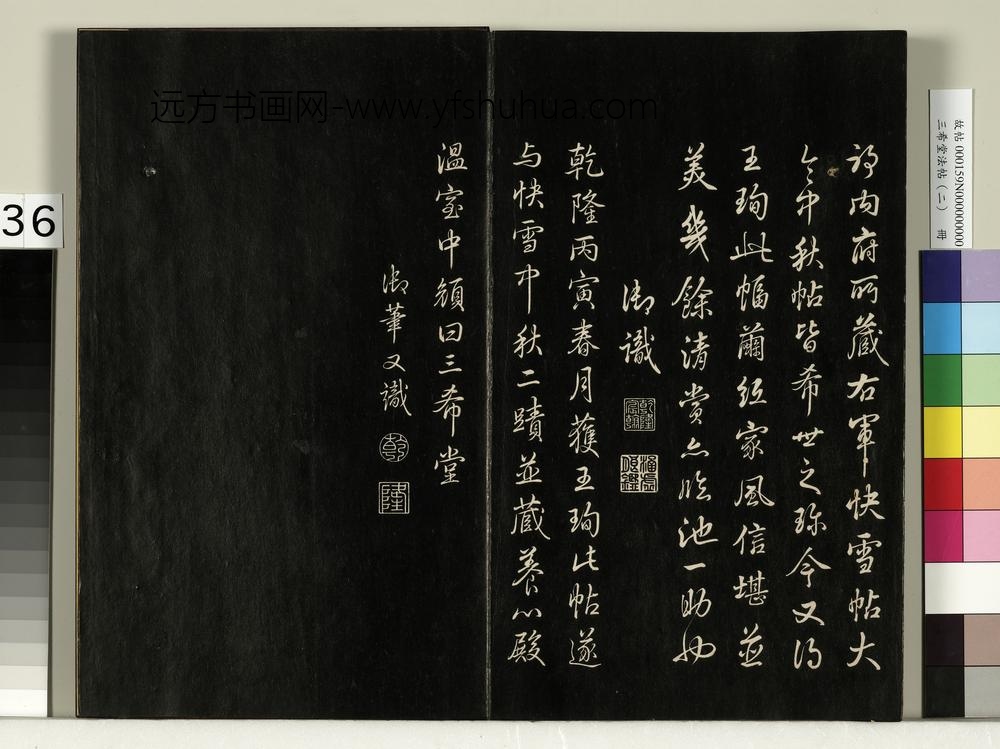 远方书画网-www.yfshuhua.com
乃內府所藏右軍快雪帖大
令中秋帖皆希世之珎今又得
王珣此幅蘭紙家風信堪並
美幾餘清賞亦臨池一助也
御識
乾隆宸翰
乾隆丙寅春月獲王珣此帖遂
与快雪中秋二蹟並藏養心殿
溫室中顏曰三希堂
御筆又識
乾
隆
36
故帖 000159N000000000
三希堂法帖（二） 冊